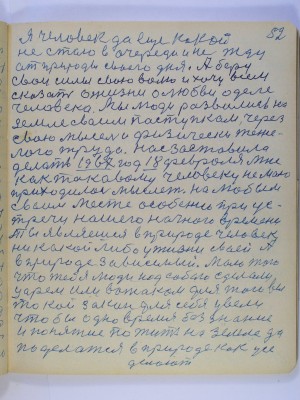 52
Я человек да еще какой
не стою в очереди и не жду
от природы своего дня. А беру
свои силы свою волю и хочу всем
сказать о жизни о любви о деле
человека. Мы люди развились на
земле своим поступкам, через
свою мысель и физически тяже-
лого труда. Нас заставила
делать 1967 год 18 февраля мне
как такавому человеку
приходилось мыслеть на любым
своим месте особенно при ус-
тречи нашего начного времени
Ты являешся в природе человек
ни какой либо у жизни своей А
в природе зависимый. Мало того
что тебя люди под собою сделали
царем или вожаком для того вы
такой закон для себя увели
чтобы одно время без знание
и понятие пожить на земле да
поделатся в природе как усе
делают